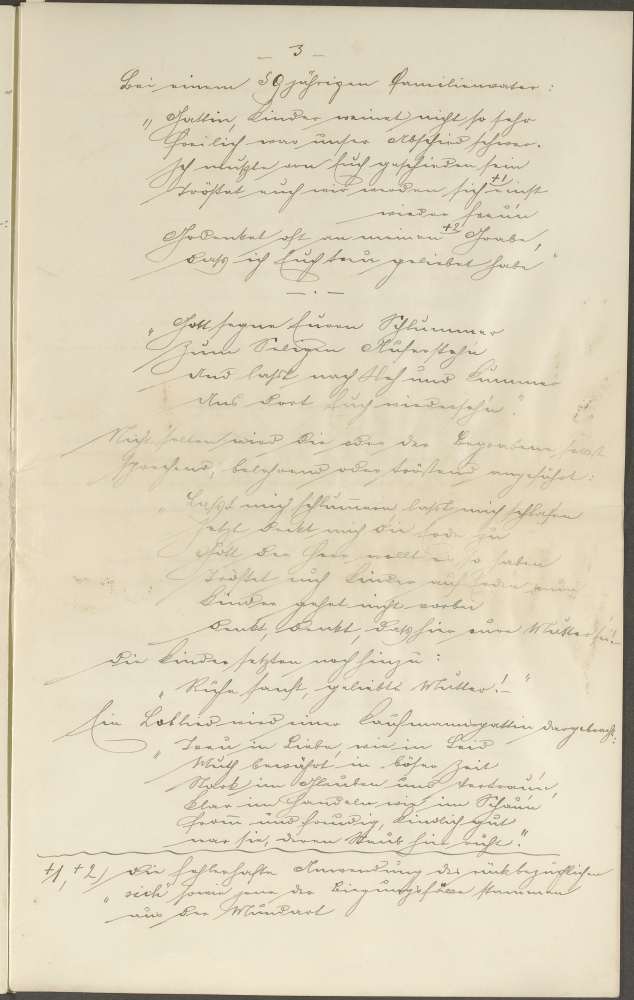 — 3 —
Bei einem 59jährigen Familienvater:
„Gattin, Kinder weinet nicht so sehr
Freilich war unser Abschied schwer.
Ich mußte von Euch geschieden sein
Tröstet euch wir werden sich +1 einst
wieder freu'n
Gedenket oft an meinen +2 Grabe,
Dass ich Euch treu geliebet habe“
— . —
„Gott segne Euren Schlummer
Zum Seligen Auferstehn
Und lasst nach Weh und Kummer
Uns dort Euch wiedersehn.“
Nicht selten wird die oder der Begrabene, selbst
sprechend, belehrend oder tröstend angeführt:
„Lasst mich schlummern, lasst mich schlafen
Jetzt deckt mich die Erde zu
Gott der Herr wollt es so haben
Tröstet euch Kinder
Kinder gehet nicht vorbei
Denkt, denkt, dass hier eure Mutter sei!
Die Kinder setzten noch hinzu:
„Ruhe sanft, geliebte Mutter!—“
Ein Loblied wird einer Kaufmannsgattin dargebracht:
„Treu in Liebe, wie in Leid
Muth bewährt in böser Zeit
Stark im Glauben und Vertrau'n,
Klar im Handeln wie im Schau'n
Fromm und freudig, kindlich gut
war sie, deren Staub hier ruht.“
+1, +2/ Die fehlerhafte Anwendung des rückbezüglichen
„sich“ sowie jene der Biegungsfälle stammen
aus der Mundart